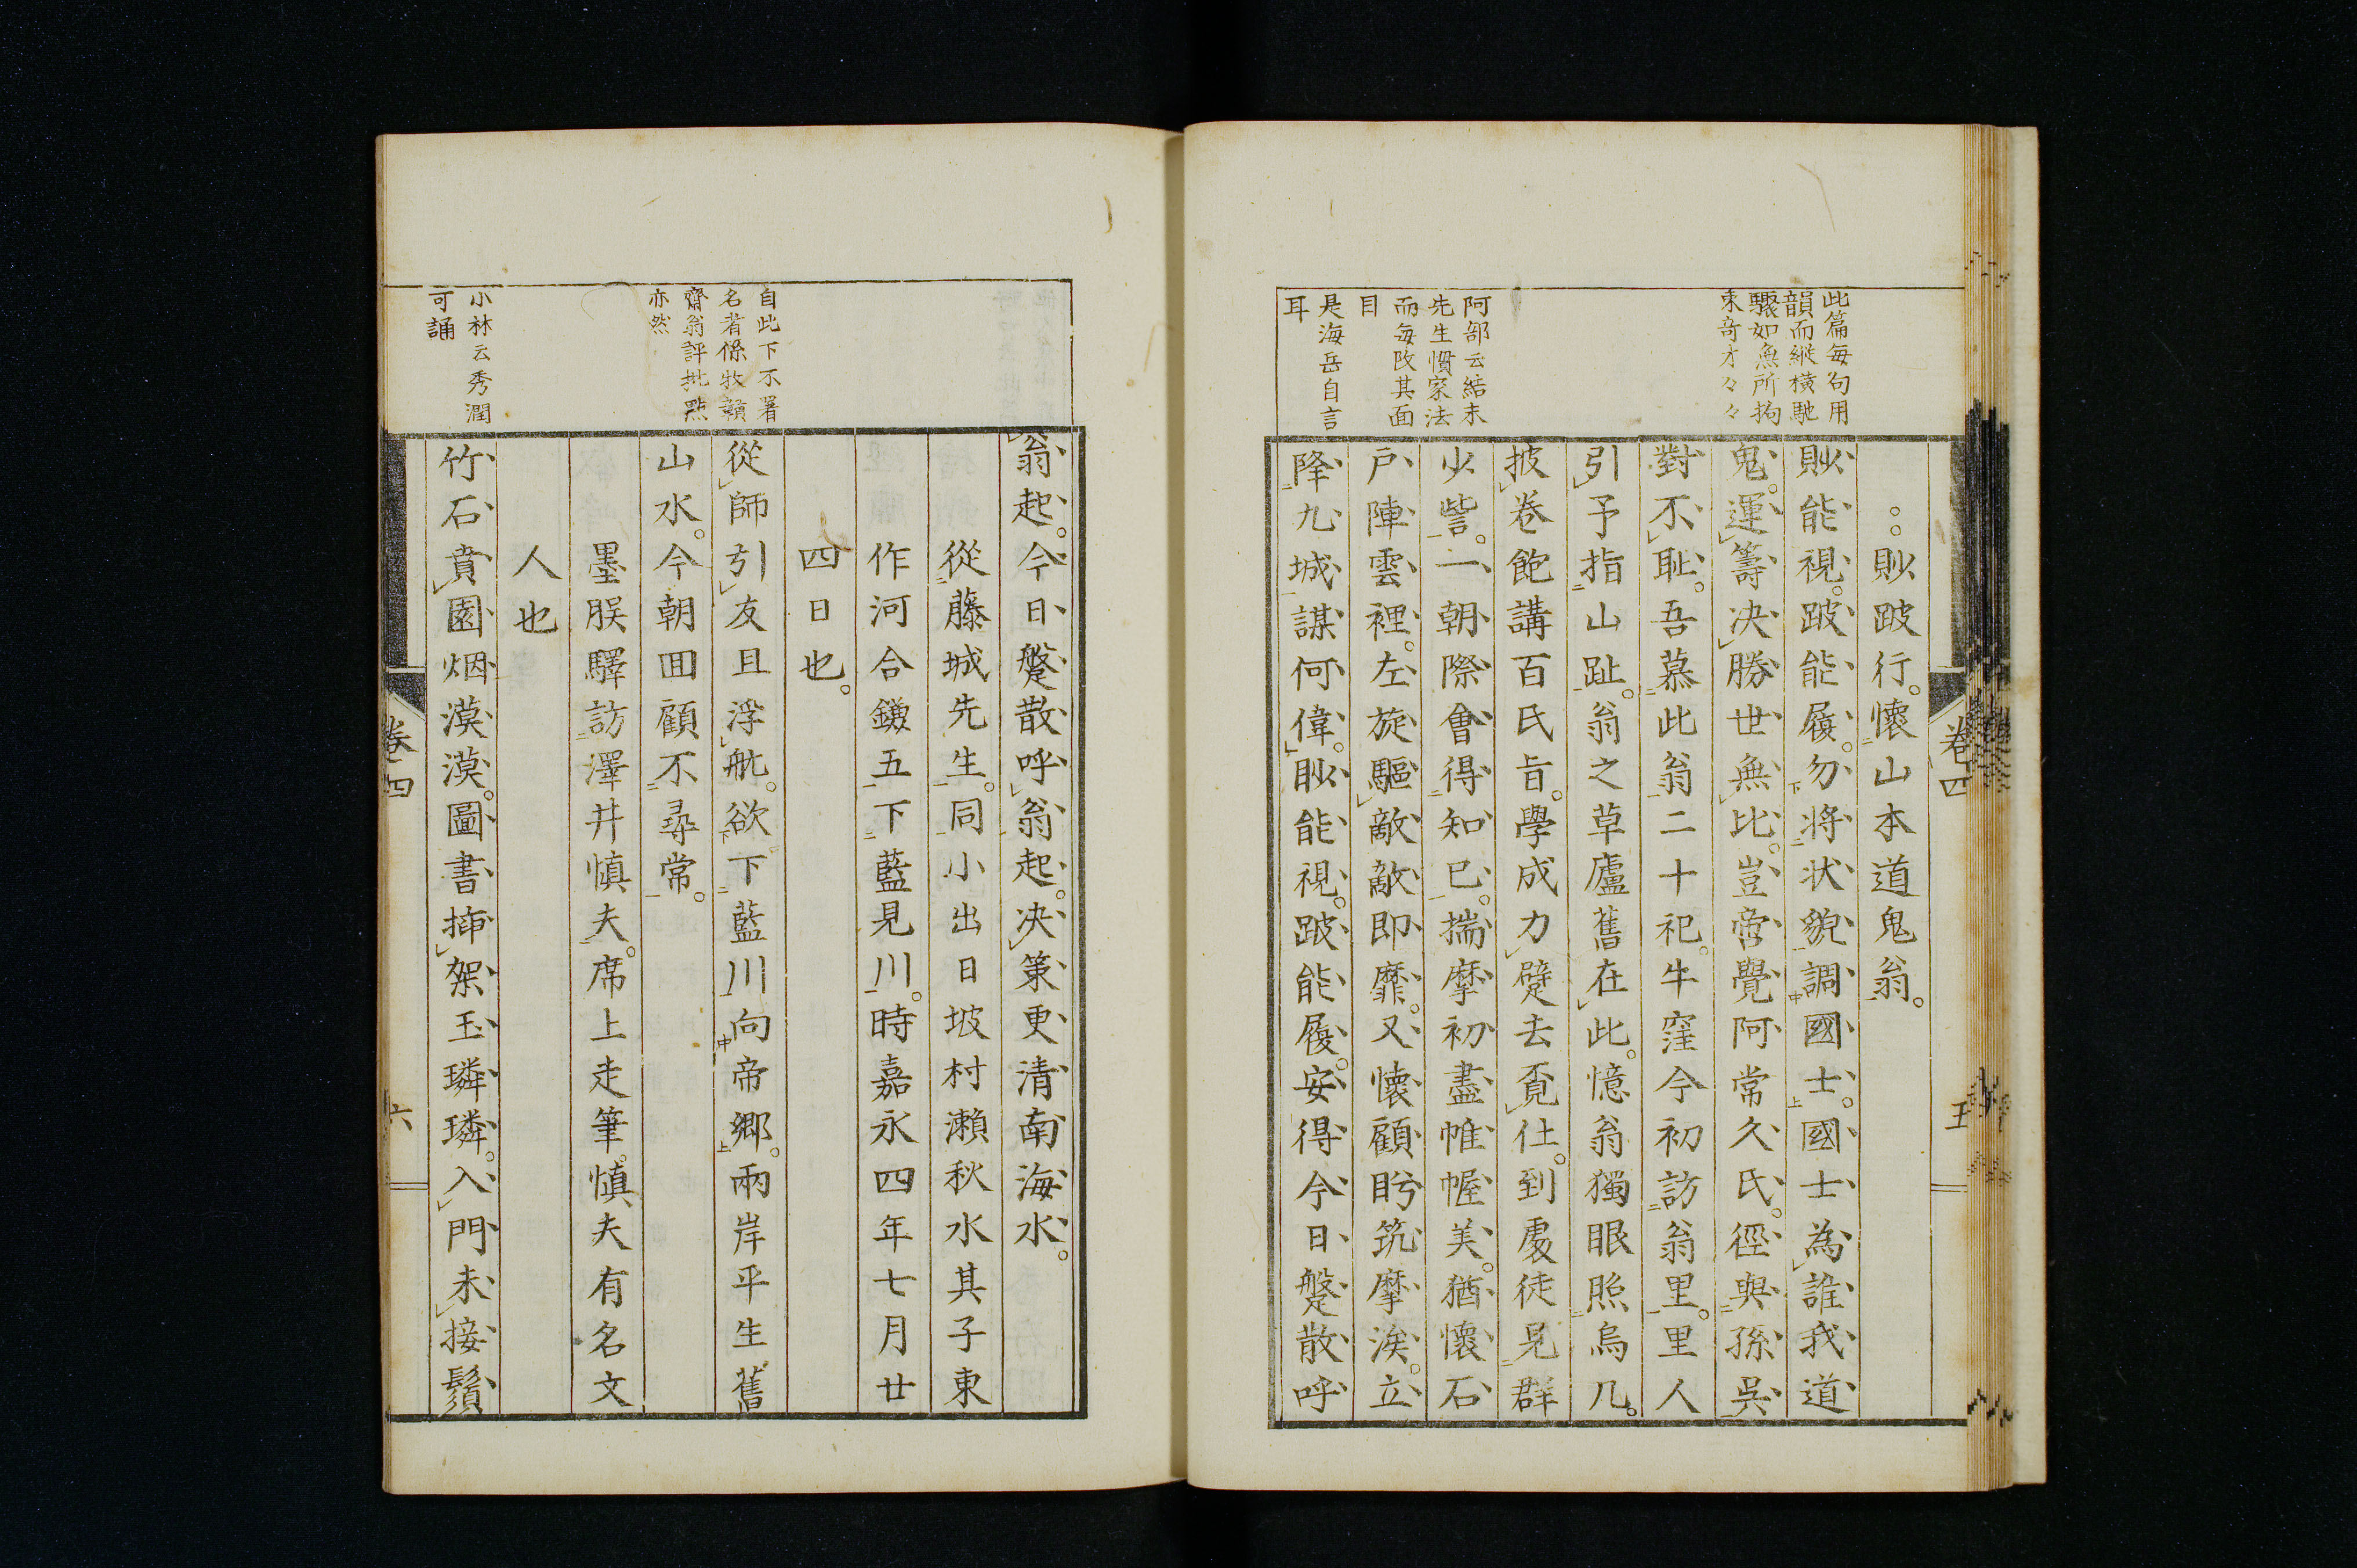 此篇每句用
韻而縱橫馳
驟如無所拘
束奇才々々
阿部云結末
先生慣家法
而每改其面
目
是海岳自言
耳
卷四
五
眇跛行。懷山本道鬼翁。
眇能視。跛能履。勿将状貌調國士。國士為誰我道
鬼。運籌决勝世無比。豈啻覺阿常久氏。徑與孫吳
對不耻。吾慕此翁二十祀。牛窪今初訪翁里。里人
引予指山趾。翁之草廬舊在此。憶翁獨眼照烏几。
披卷飽講百氏旨。學成力躄去覓仕。到處徒見群
少訾。一朝際會得知已。揣摩初盡帷幄美。猶懷石
戸陣雲裡。左旋驅敵敵即靡。又懷顧眄筑摩涘。立
降九城謀何偉。眇能視。跛能履。安得今日蹩散呼
自此下不署
名者係牧贛
齋翁評批點
亦然
小林云秀潤
可誦
翁起。今日蹩散呼翁起。决策更清南海水。
從藤城先生。同小出日坡村瀨秋水其子東
作河合鎌五下藍見川。時嘉永四年七月廿
四日也。
從師引友且浮航。欲下藍川向帝鄉。兩岸平生舊
山水。今朝囬顧不尋常。
墨脵驛訪澤井慎夫。席上走筆。慎夫有名文
人也
竹石賁園烟漠漠。圖書揷架玉璘璘。入門未接鬚
卷四
六